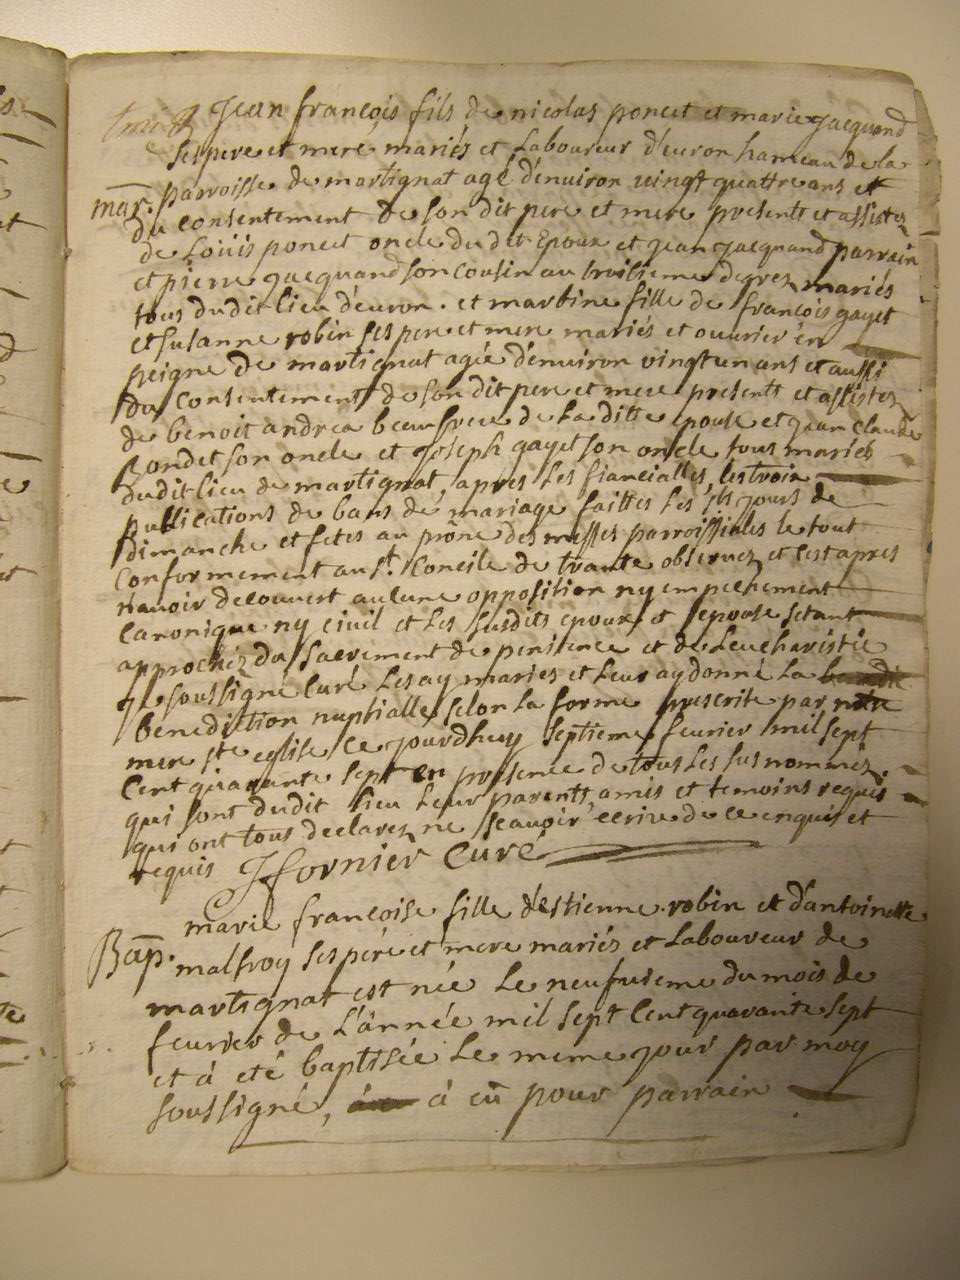 Jean françois fils de nicolas poncet et marie Jacquand
ses pere et mere mariés et Laboureur d'euron hameau de la
mar. parroisse de martignat agé d'enuiron uingt quattre ans et
du consentement de son dit pere et mere presents et assistez
de Loüis poncet oncle du dit Epoux et jean jacquand parrain
et pierre jacquand son cousin au troisieme degrez mariés
tous dudit lieu d'euron. et martine fille de françois gayet
et susanne robin ses pere et mere mariés et ouurier en
peigne de martignat agée d'enuiron vingt un ans et aussi
du consentement de son dit pere et mere presents et assistez
de benoit andrea beaufrere de la ditte epouse et jean claude
Rondet son oncle et Joseph gayet son oncle tous mariés
dudit lieu de martignat, apres les fiancialles, les trois
publications de bans de mariage faittes les jours de
dimanche et fetes au prône des messes parroissiales le tout
conformement au st. Concile de trante obseruez et c'est apres
n'auoir decouuert aucune opposition ny empechement
Canonique ny ciuil et les susdits epoux et epouse setant
approchéz du sacrement de penitence et de leucharistie
je soussigné Curé les ay mariés et leur ay donné la
benediction nuptialle selon la forme prescrite par notre
mere ste eglise ce jourdhuy septieme feurier mil sept
Cent quarante sept en presence de tous les susnommez
qui sont dudit lieu leur parents, amis et temoins requis
qui ont tous declarez ne scauoir ecrire de ce enquis et
requis Jfornier Curé
marie françoise fille d'estienne robin et d'antoinette
Bap. malfroy ses pere et mere mariés et Laboureur de
martignat est née le neufuieme du mois de
feurier de l'année mil sept Cent quarante sept
et à eté baptisée le meme jour par moy
soussigné, à eû pour parrain